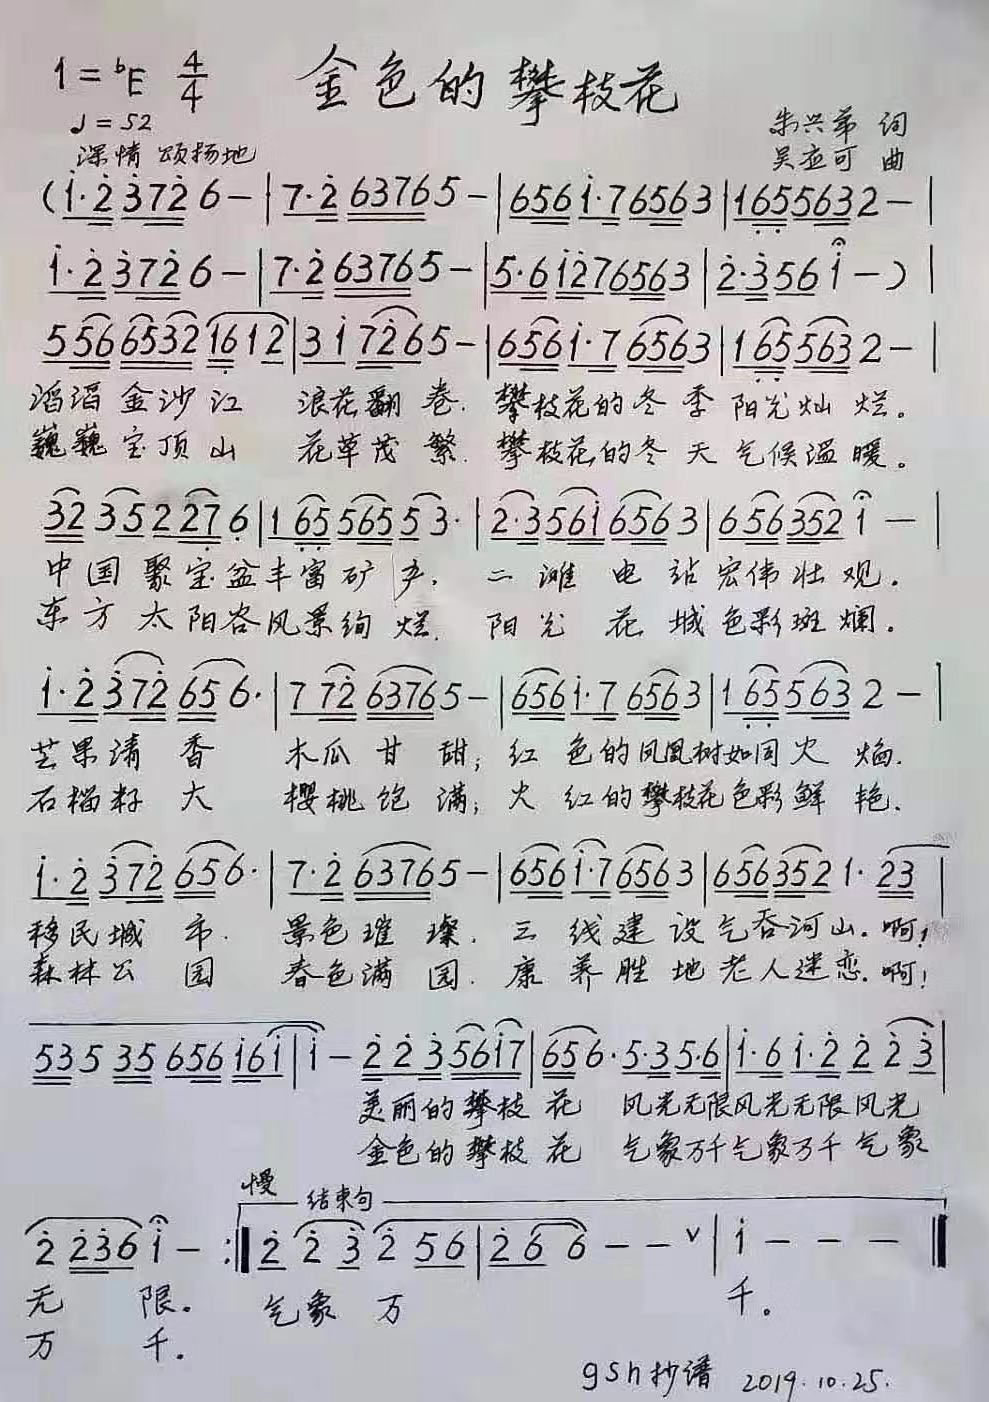 1=♭E 4/4 金色的攀枝花
♩=52
深情 颂扬地
朱兴弟 词
吴应可 曲
(i·2 372 6- | 7·2 63765- | 656 i·7 6563 | 165 5632- |
i·2 372 6- | 7·2 63765- | 5·6 i276563 | 2·356 i-) |
556 6532 1612 | 3 i 7265- | 656i·7 6563 | 165 563 2- |
滔滔金沙江 浪花翻卷. 攀枝花的冬季 阳光灿烂。
巍巍宝顶山 花草茂繁. 攀枝花的冬天 气候温暖。
32 352 276 | 165 565 53· | 2·356i 6563 | 656352 i - |
中国聚宝盆丰富矿产, 二滩电站宏伟壮观.
东方太阳谷风景绚烂. 阳光花城色彩斑斓.
i·2 372 656· | 772 63765- | 656i·7 6563 | 165 563 2- |
芒果清香 木瓜甘甜; 红色的凤凰树如同火焰.
石榴籽大 樱桃饱满; 火红的攀枝花色彩鲜艳.
i·2 372 656· | 7·2 63765- | 656i·7 6563 | 656352 1·23
移民城市. 景色璀璨. 三线建设气吞河山.啊!
森林公园 春色满园. 康养胜地老人迷恋.啊!
535 35 656 i6i | i - 223 56i7 | 656·5·35·6 | i·6 i·2 2 23 |
美丽的攀枝花 风光无限风光无限风光
金色的攀枝花 气象万千气象万千气象
慢 结束句
2 236 i - :‖ 2 23 256 | 266 - - ∨ | i - - - ‖
无 限. 气象万 千。
万 千.
gsh抄谱 2019.10.25.